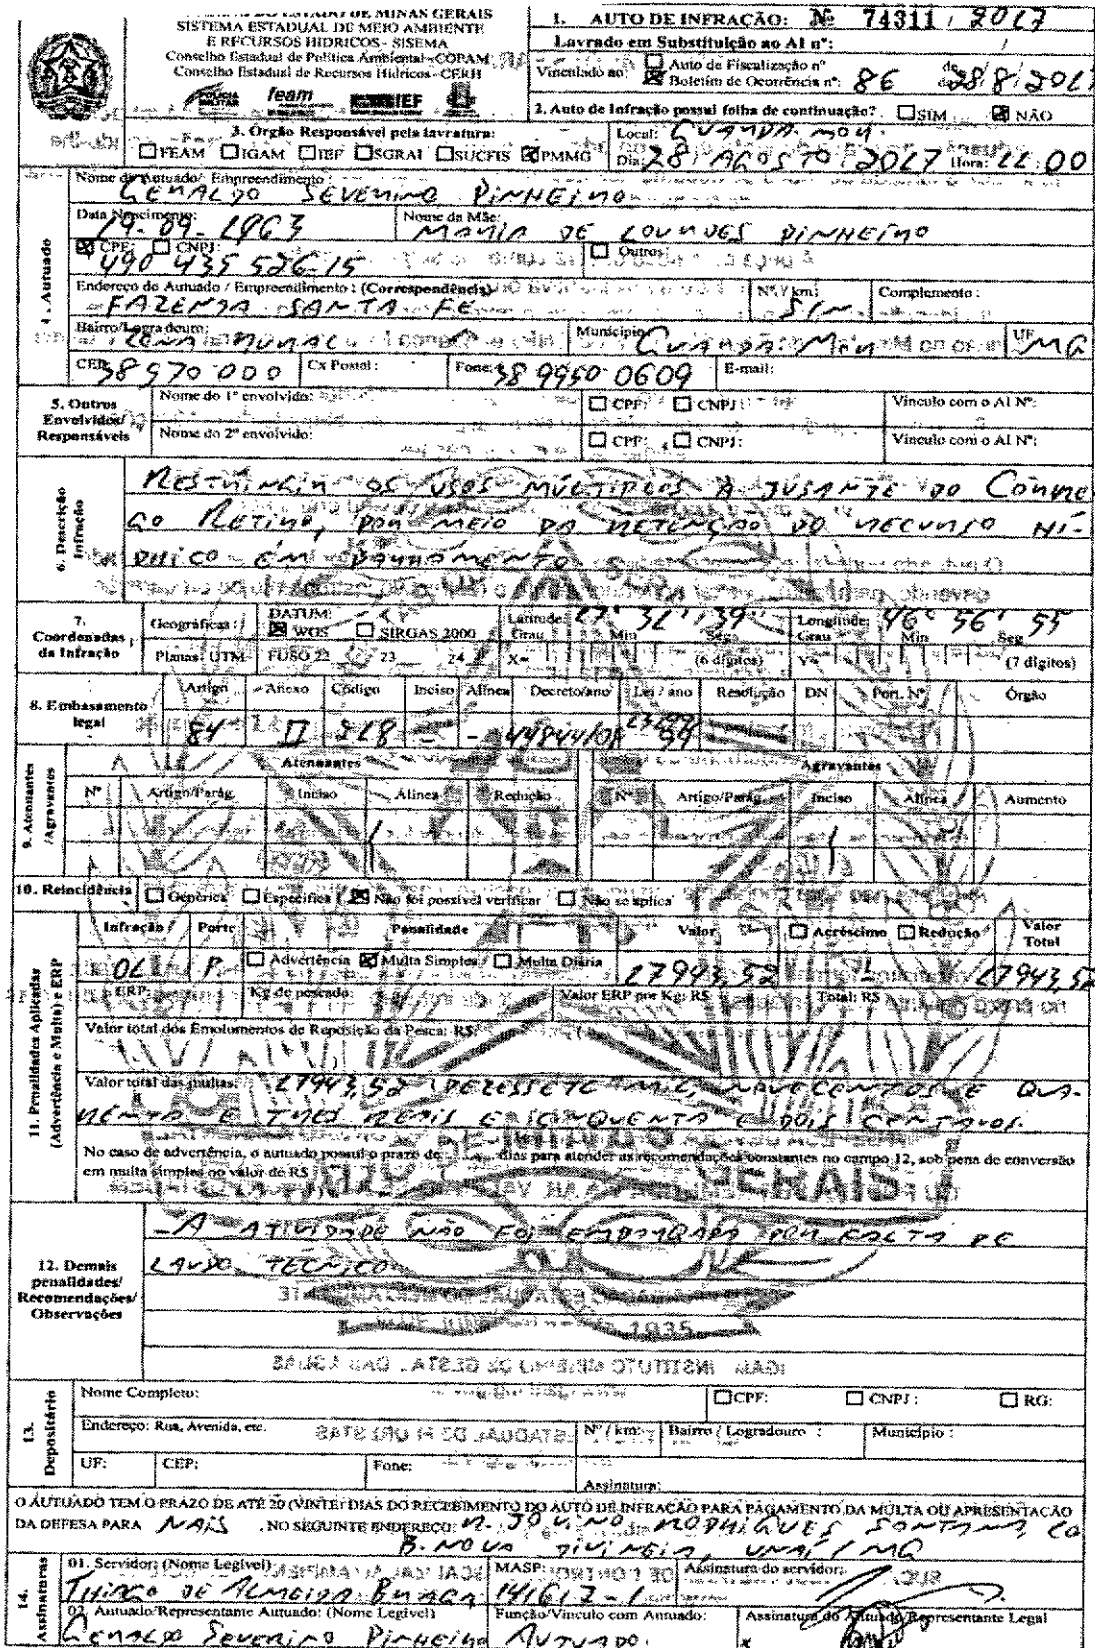 DO ESTADO DE MINAS GERAIS
SISTEMA ESTADUAL DE MEIO AMBIENTE
E RECURSOS HIDRICOS - SISEMA
Conselho Estadual de Política Ambiental - COPAM
Conselho Estadual de Recursos Hídricos - CERH
feam IEF
1. AUTO DE INFRAÇÃO: Nº 74311 / 2017
Lavrado em Substituição ao AI nº: /
Vinculado ao: Auto de Fiscalização nº de
Boletim de Ocorrência nº: 86 28/8/2017
2. Auto de Infração possui folha de continuação? SIM NÃO
3. Órgão Responsável pela lavratura:
FEAM IGAM IEF SGRAI SUCFIS PMMG
Local: GUARDA MOR
Dia: 28 AGOSTO 2017 Hora: 11:00
4. Autuado
Nome do Autuado/ Empreendimento:
GERALDO SEVERINO PINHEIRO
Data Nascimento: Nome da Mãe:
19-09-1963 MARIA DE LOURDES PINHEIRO
CPF: CNPJ: Outros
490 435 526-15
Endereço do Autuado / Empreendimento : (Correspondência) Nº / km: Complemento :
FAZENDA SANTA FE S/N
Bairro/Logradouro: Município: UF
ZONA RURAL GUARDA-MOR MG
CEP: 38570-000 Cx Postal: Fone: 38 9950-0609 E-mail:
5. Outros Envolvidos/ Responsáveis
Nome do 1º envolvido: CPF: CNPJ: Vínculo com o AI Nº:
Nome do 2º envolvido: CPF: CNPJ: Vínculo com o AI Nº:
6. Descrição Infração
RESTRINGIR OS USOS MÚLTIPLOS A JUSANTE DO CÓRRE
GO RETIRO, POR MEIO DA RETENÇÃO DO RECURSO HÍ-
DRICO EM BARRAMENTO
7. Coordenadas da Infração
Geográficas: DATUM: WGS SIRGAS 2000 Latitude: Grau 17° Min 31' Seg 39" Longitude: Grau 46° Min 56' Seg 55
Planas: UTM FUSO 22 23 24 X= (6 dígitos) Y= (7 dígitos)
8. Embasamento legal
Artigo Anexo Código Inciso Alínea Decreto/ano Lei / ano Resolução DN Port. Nº Órgão
84 II 218 - - 44844/08 13199 99
9. Atenuantes /Agravantes
Atenuantes Agravantes
Nº Artigo/Parág. Inciso Alínea Redução Nº Artigo/Parág. Inciso Alínea Aumento
10. Reincidência Genérica Específica Não foi possível verificar Não se aplica
11. Penalidades Aplicadas (Advertência e Multa) e ERP
Infração Porte Penalidade Valor Acréscimo Redução Valor Total
01 P Advertência Multa Simples Multa Diária 17943,52 - 17943,52
ERP: Kg de pescado: Valor ERP por Kg: R$ Total: R$
Valor total dos Emolumentos de Reposição da Pesca: R$
Valor total das multas: 17943,52 DEZESSETE MIL, NOVECENTOS E QUA-
RENTA E TRES REAIS E CINQUENTA E DOIS CENTAVOS.
No caso de advertência, o autuado possui o prazo de dias para atender as recomendações constantes no campo 12, sob pena de conversão
em multa simples no valor de R$
12. Demais penalidades/ Recomendações/ Observações
- A ATIVIDADE NÃO FOI EMBARGADA POR FALTA DE
LAUDO TECNICO
1935
13. Depositário
Nome Completo: CPF: CNPJ : RG:
Endereço: Rua, Avenida, etc. Nº / km: Bairro / Logradouro : Município :
UF: CEP: Fone: Assinatura:
O AUTUADO TEM O PRAZO DE ATÉ 20 (VINTE) DIAS DO RECEBIMENTO DO AUTO DE INFRAÇÃO PARA PAGAMENTO DA MULTA OU APRESENTAÇÃO
DA DEFESA PARA NAIS , NO SEGUINTE ENDEREÇO: R. JOVINO RODRIGUES SANTANA, 10
B. NOVA DIVINEIA, UNAÍ / MG
14. Assinaturas
01. Servidor: (Nome Legível) MASP: Assinatura do servidor:
THIAGO DE ALMEIDA BRAGA 141617-1
02. Autuado/Representante Autuado: (Nome Legível) Função/Vínculo com Autuado: Assinatura do Autuado/Representante Legal
GERALDO SEVERINO PINHEIRO AUTUADO. x